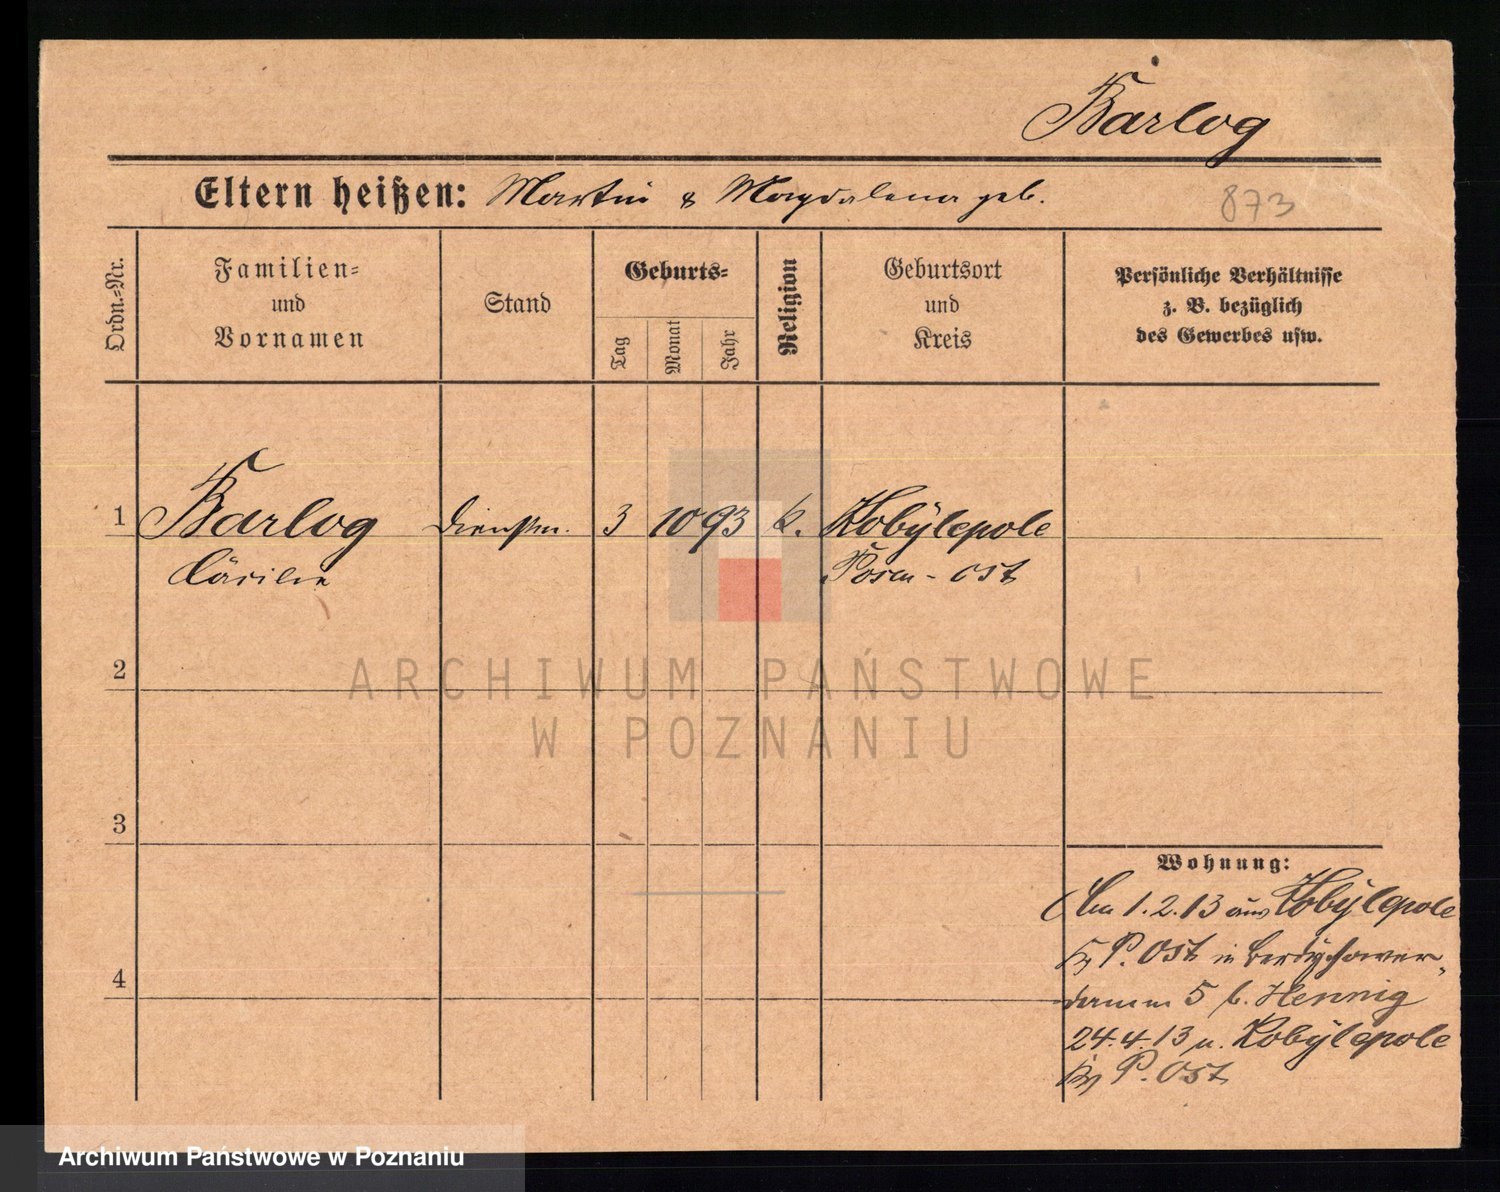 Barlog
Eltern heißen: Martin & Magdalena geb.
873
Ordn.-Nr.
Familien-
und
Vornamen
Stand
Geburts-
Tag
Monat
Jahr
Religion
Geburtsort
und
Kreis
Persönliche Verhältnisse
z. B. bezüglich
des Gewerbes usw.
1 Barlog Dienstm. 3 10 93 k. Kobylepole
Cäcilie Posen-Ost
2
ARCHIWUM PAŃSTWOWE
W POZNANIU
3
Wohnung:
1.2.13 aus Kobylepole
P. Ost in Berdychower-
4
damm 5 b. Hennig
24.4.13 n. Kobylepole
P. Ost
Archiwum Państwowe w Poznaniu